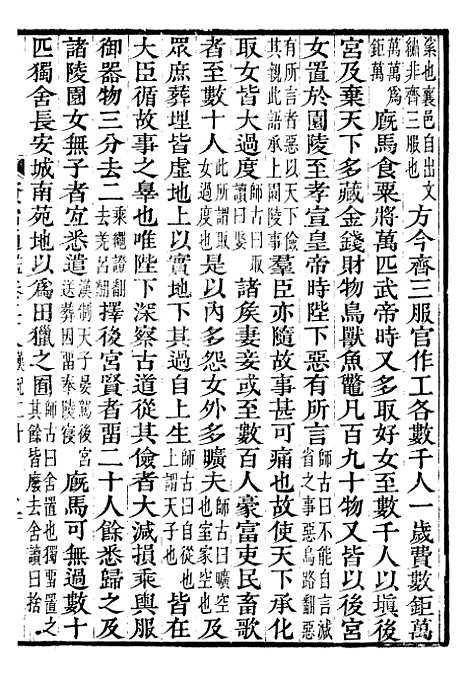 絫也襄邑自出文繡非齊三服也方今齊三服官作工各數千人一歲費數鉅萬
萬萬爲鉅萬廐馬食粟將萬匹武帝時又多取好女至數千人以塡後
宮及棄天下多藏金錢財物鳥獸魚鼈凡百九十物又皆以後宮
女置於園陵至孝宣皇帝時陛下惡有所言師古曰不能自言減省之事惡烏路翻惡
有所言者以天下儉此語承上園陵言羣臣亦隨故事甚可痛也故使天下承化
取女皆大過度師古曰取讀曰娶諸矦妻妾或至數百人豪富吏民畜歌
者至數十人是以內多怨女外多曠夫師古曰曠空也室家空也
眾庶葬埋皆虛地上以實地下其過自上生師古曰自從也上謂天子也皆在
大臣循故事之辠也唯陛下深察古道從其儉者大減損乘輿服
御器物三分去二乘繩證翻去羌呂翻擇後宮賢者畱二十人餘悉歸之及
諸陵園女無子者宜悉遣漢制天子晏駕後宮送葬因畱奉陵寢廐馬可無過數十
匹獨舍長安城南苑地以爲田獵之囿師古曰舍置也獨畱置之其餘皆廢去舍讀曰捨